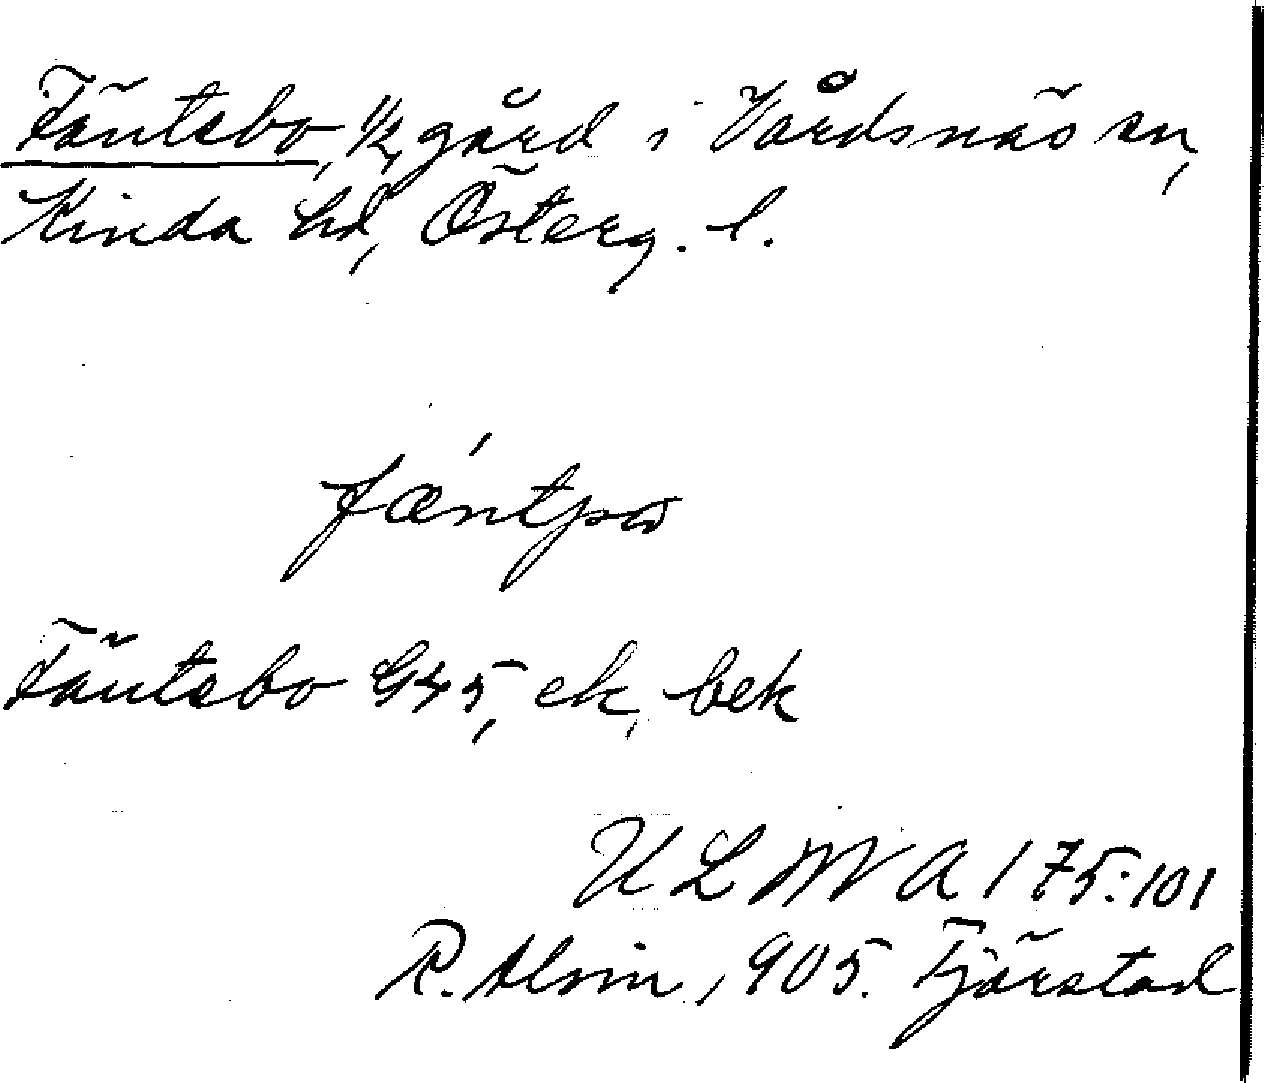 Fäntebo, 1/2 gård i Vårdsnäs sn,
Kinda hd, Österg. l.
fæ´ntpω
Fäntebo G45, ek, bek
ULMA 175:101
R. Alvin, 905. Tjärstad